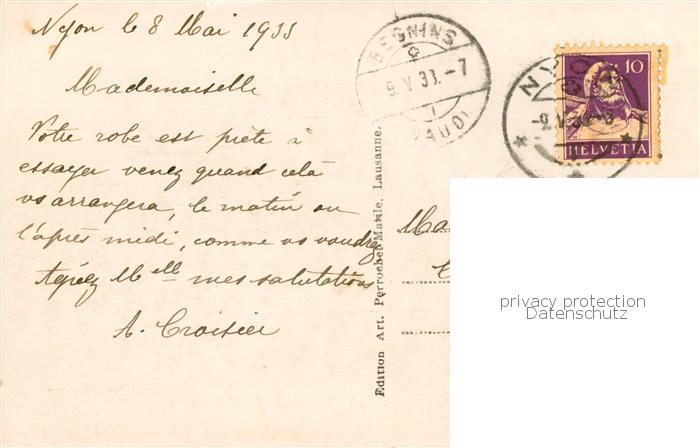 Nyon le 8 Mai 1933
Mademoiselle
Votre robe est prête à
essayer venez quand celà
vs arrangera, le matin ou
l'après midi, comme vs voudrez
Agréez Melle mes salutations
A. Croisier
Edition Art. Perrochet-Matile, Lausanne.
BEGNINS
9.V.33.-7
(VAUD)
NYON
-9.V.33.-3
10
HELVETIA
Ma
privacy protection
Datenschutz